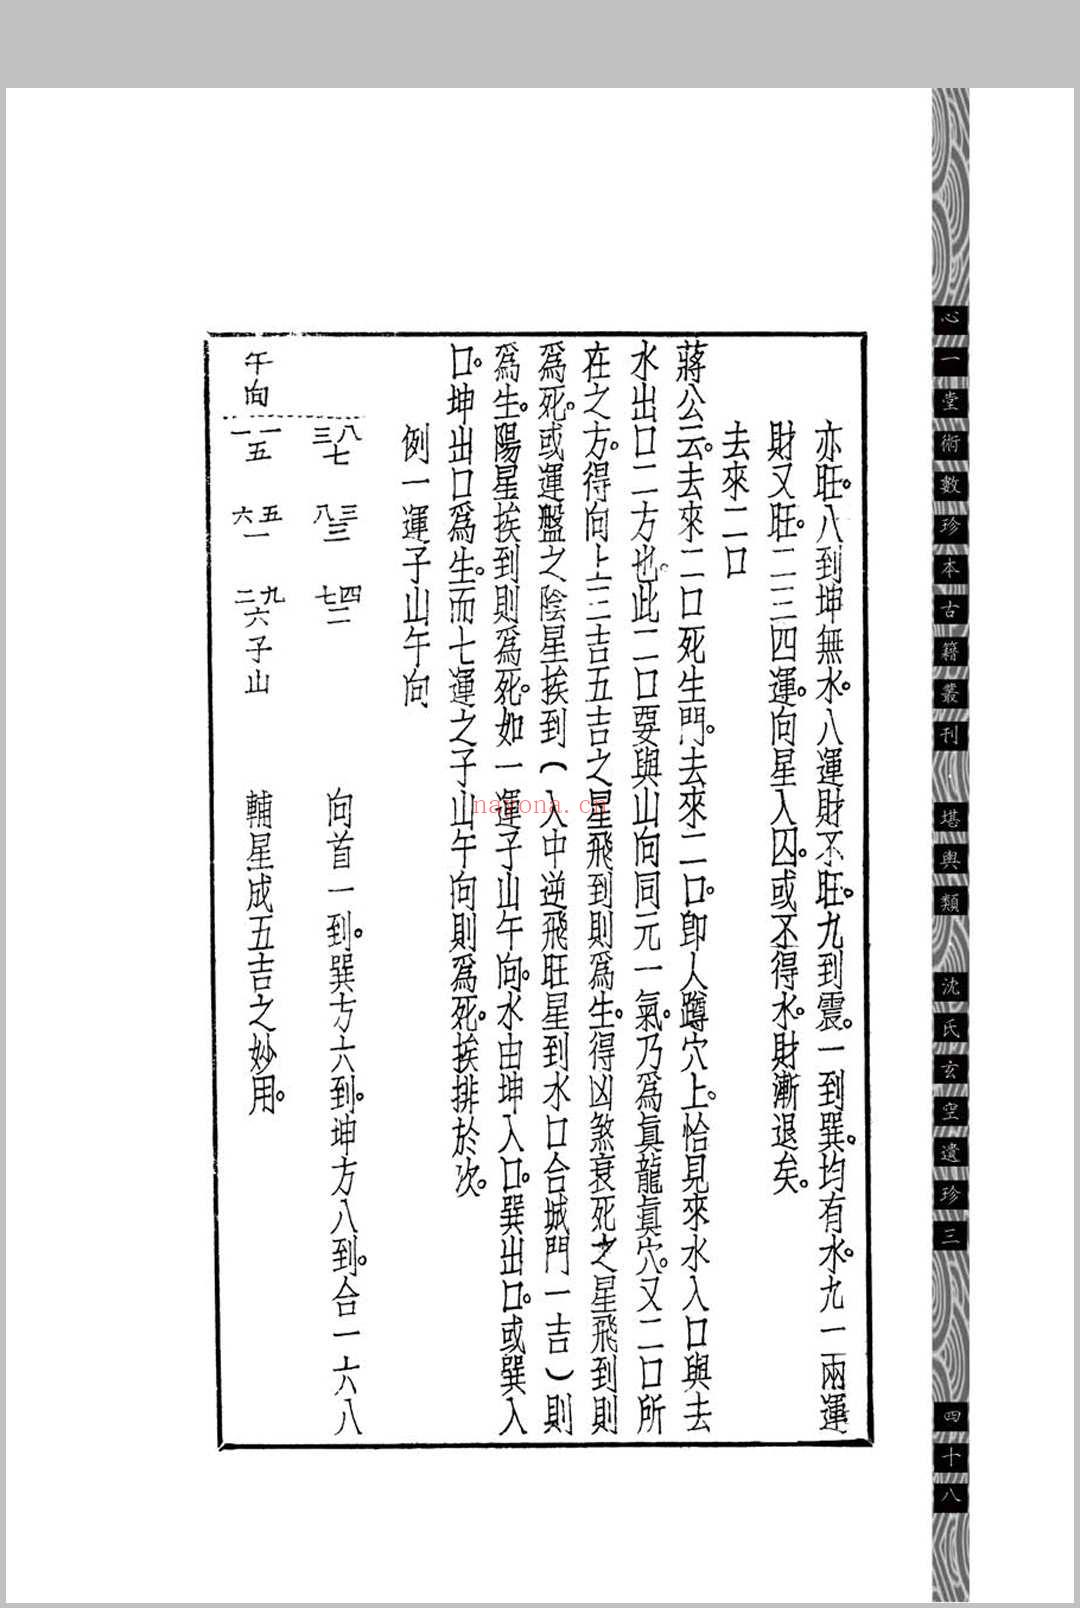 亦旺。八到坤無水。八運財不旺。九到震。一到巽。均有水。九一兩運
財又旺。二三四運。向星入囚。或不得水。財漸退矣。
去來二口
蔣公云。去來二口死生門。去來二口。卽人蹲穴上。恰見來水入口與去
水出口二方也。此二口要與山向同元一氣。乃爲眞龍眞穴。又二口所
在之方。得向上三吉五吉之星飛到則爲生。得凶煞衰死之星飛到則
爲死。或運盤之陰星挨到（入中逆飛旺星到水口合城門一吉）則
爲生。陽星挨到則爲死。如一運子山午向。水由坤入口。巽出口。或巽入
口。坤出口爲生。而七運之子山午向則爲死。挨排於次。
例一運子山午向
八三七
三八三
四七二
向首一到。巽方六到。坤方八到。合一六八
午向
一一五
五六一
九二六
子山
輔星成五吉之妙用。
心一堂術數珍本古籍叢刊 堪輿類 沈氏玄空遺珍三
四十八
nayona.cn